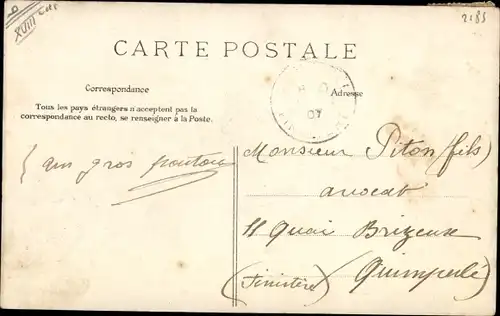 2185
CARTE POSTALE
Correspondance
Adresse
Tous les pays étrangers n'acceptent pas la
correspondance au recto, se renseigner à la Poste.
07
Monsieur Piton (fils)
avocat
11 Quai Brizeux
Quimperlé
(Finistère)
un gros